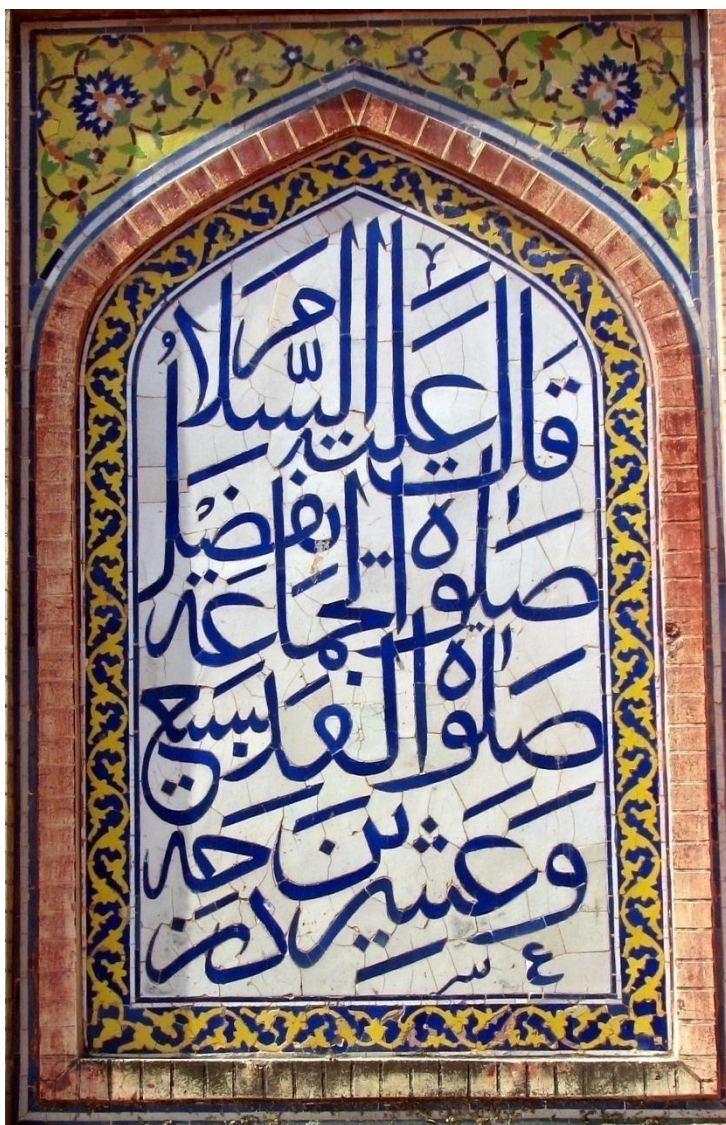 قال عليه السّلام
صلوة الجماعة تفضل
صلوة الفذ بسبع
وعشرين درجة